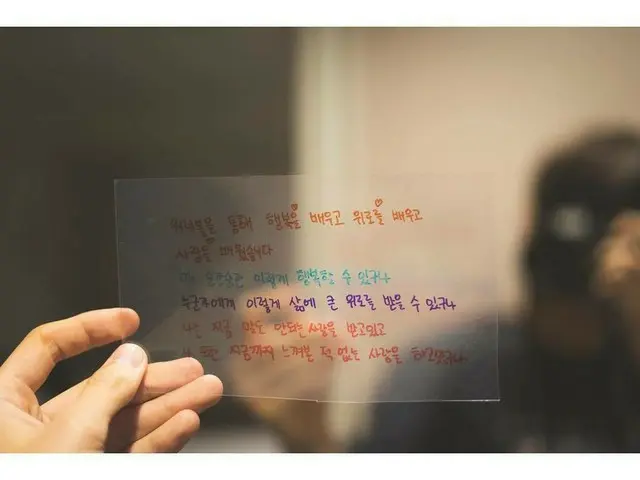 워너블을 통해 행복을 배우고 위로를 배우고
사랑을 배웠습니다
순간 이렇게 행복할 수 있구나
누군가에게 이렇게 삶에 큰 위로를 받을 수 있구나
나는 지금 말도 안되는 사랑을 받고있고
나 또한 지금까지 느껴본 적 없는 사랑을 하고있구나